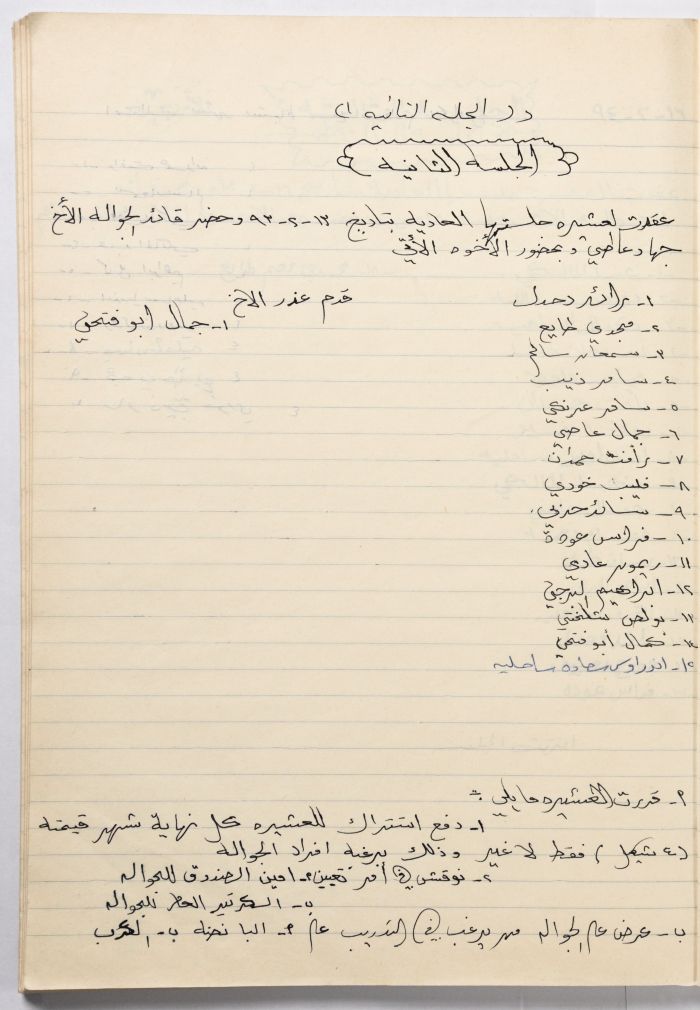 رد الجلسه الثانيه
الجلسة الثانية
عقدت لعشيره جلستها العاديه بتاريخ ١٣-٢-٩٣ وحضر قائد الجواله الأخ
جهاد عاصي وبحضور الأخوه الأتي
١- رائد دحدل
٢- مجدي طايع
٣- سمعان سالم
٤- سامر ذيب
٥- سامر عرنكي
٦- جمال عاصي
٧- رأفت حمدان
٨- فليب خودي
٩- سائد حزبي
١٠- فراس عودة
١١- ريمون عادي
١٢- ابراهيم البرجي
١١- بولص
١٤- كمال أبو فتحي
١٢- اندراوس سعادة ساحليه
قدم عذر الاخ
١- جمال ابو فتحي
٢- قررت العشيره ما يلي :=
١- دفع اشتراك للعشيره كل نهاية شهر قيمته
(٤ شيكل) فقط لا غير وذلك برغبه افراد الجواله
٢- نوقش في أمر تعيين أ- امين الصندوق للجواله
ب- السكرتير العام للجواله
ب- عرض على الجواله من يرغب في التدريب على أ- الباتصنه ب- القرب